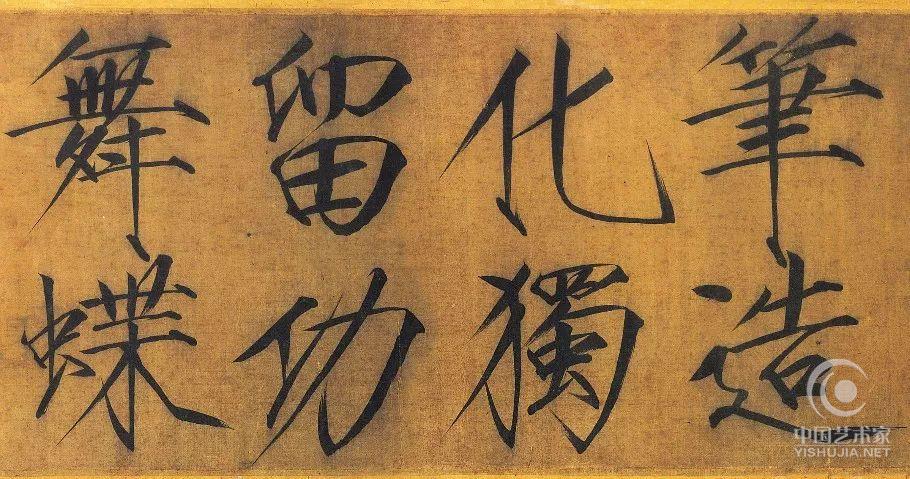 筆造
化獨
留功
舞蝶
中国艺术家
YISHUJIA.NET